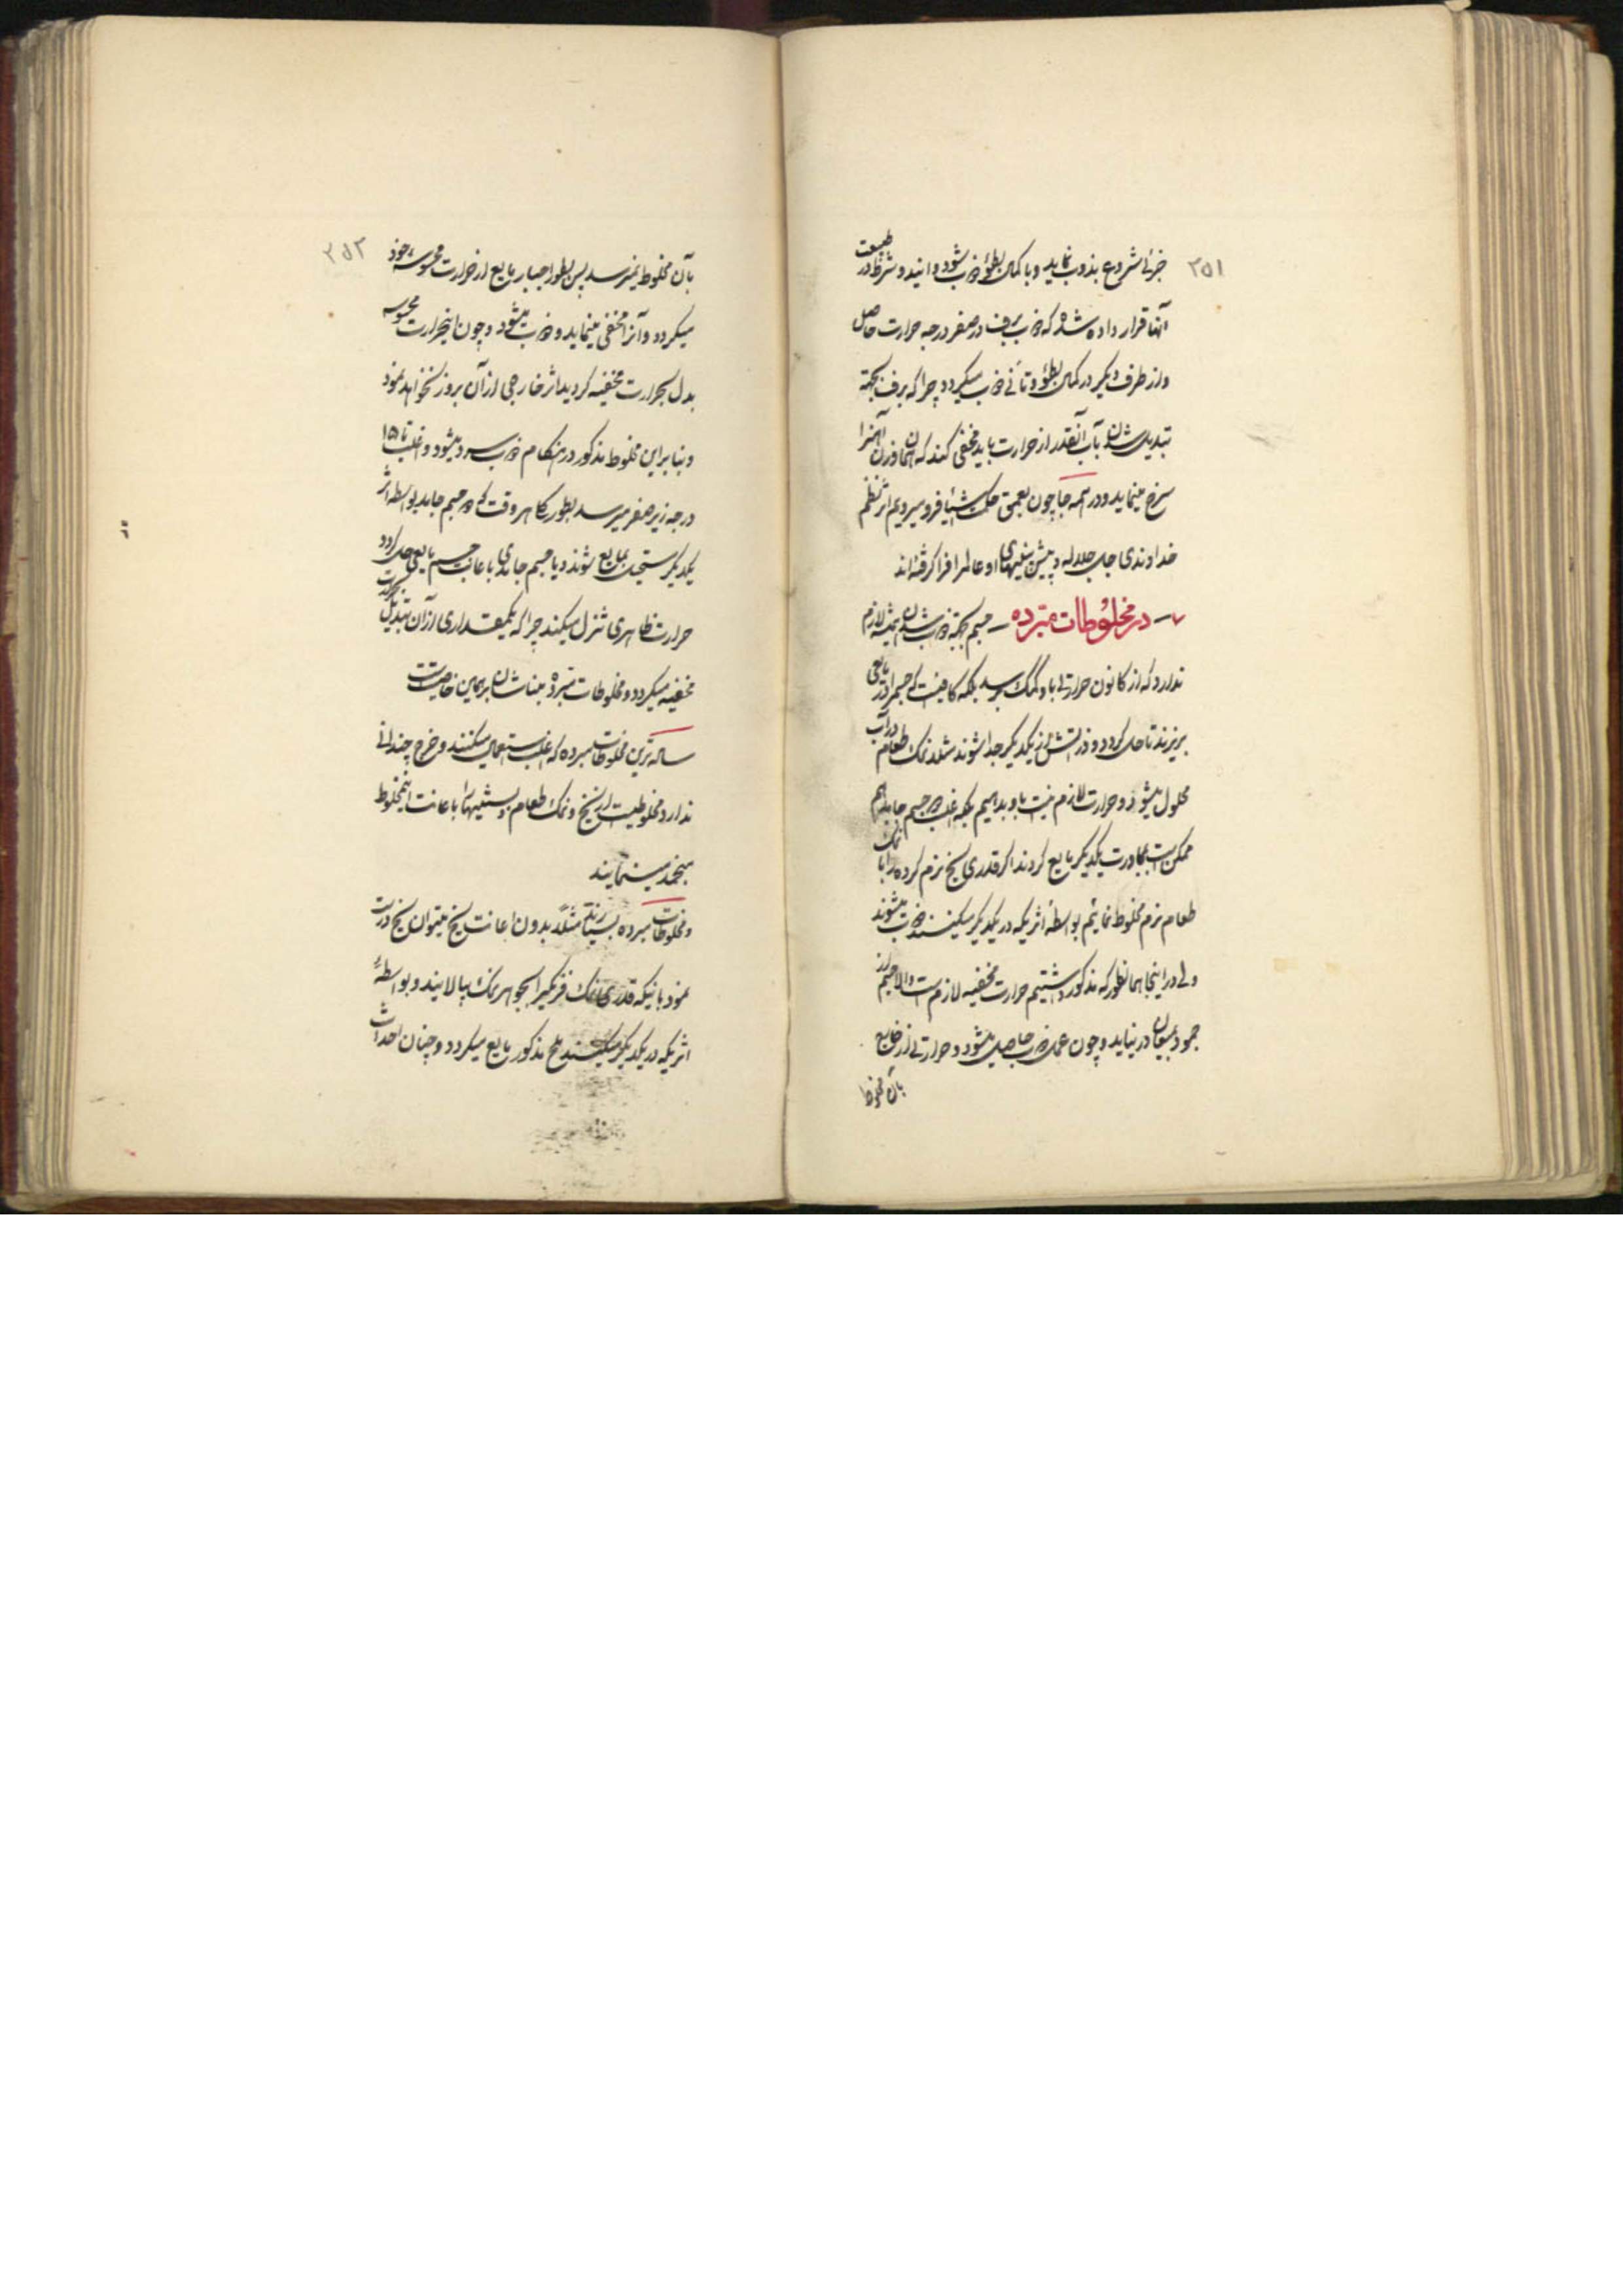 ۲۵۱
جزئی شروع بذوب نماید و با کمال بطؤ ذوب شود و انیدو شرط در طبیعت
آنها قرار داده شده که ذوب برف در صفر درجه حرارت حاصل
و از طرف دیگر در کمال بطؤ و تأنی ذوب میگردد چرا که برف بجهة
تبدیل شدن بآب آنقدر از حرارت باید مخفی کند که همان وزن آهنرا
سرخ مینماید و در همه جا چون بعمق حکمت اشیا فرو میرویم اثر نظم
خداوندی جل جلاله و پیش بینیهای او عالمرا فرا گرفته‌اند
۷ – در مخلوطات مبرده – جسم بجهة ذوب شدن همیشه لازم
ندارد که از کانون حرارتی باو کمک برسد بلکه کافیست که جسم را در مایعی
بریزند تا حل گردد و ذراتش از یکدیگر جدا شوند مثلا نمک طعام در آب
محلول میشود و حرارت لازم نیست باو بدهیم بلکه اغلب دو جسم جامد هم
ممکن است بمجاورت یکدیگر مایع گردند اگر قدری یخ نرم کرده را با نمک
طعام نرم مخلوط نمائیم بواسطۀ اثریکه در یکدیگر میکنند ذوب میشوند
ولی در اینجا همانطور که مذکور داشتیم حرارت مخفیه لازم است والا جسم از
جمود بمیعان در نیاید و چون عمل ذوب حاصل میشود و حرارتی از خارج
بآن مخلوط
۲۵۲
بآن مخلوط نمیرسد پس بطور اجبار مایع از حرارت محسوسه خود
میگردد و آنرا مخفی مینماید و ذوب میشود و چون اینحرارت محسوسه
بدل بحرارت مخفیه گردید اثر خارجی از آن بروز نخواهد نمود
و بنابراین مخلوط مذکور در هنگام ذوب سرد میشود و اغلب تا ۱۵
درجه زیر صفر میرسد بطور کلی هر وقت که دو جسم جامد بواسطه اثر
یکدیگر مستحیل بمایع شوند و یا جسم جامدی باعانت جسم مایعی حل گردد
حرارت ظاهری تنزل میکند چرا که یکمقداری از آن تبدیل بحرارت
مخفیه میگردد و مخلوطات مبرده بناشان بر همین خاصیت است
ساده‌ترین مخلوطات مبرده که اغلب استعمال میکنند و خرج چندانی
ندارد مخلوطیست از یخ و نمک طعام و بستنیهارا باعانت اینمخلوط
منجمد مینمایند
و مخلوطات مبرده بسیارند مثلا بدون اعانت یخ میتوان یخ درست
نمود بانیکه قدری نمک فرنگی را بجوهر نمک بیالایند و بواسطۀ
اثریکه در یکدیگر میکنند ملح مذکور مایع میگردد و چنان احداث